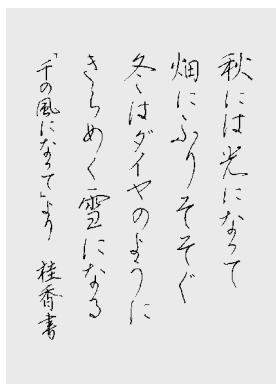 秋には光になって
畑にふりそそぐ
冬はダイヤのように
きらめく雪になる
「千の風になって」より　桂香書